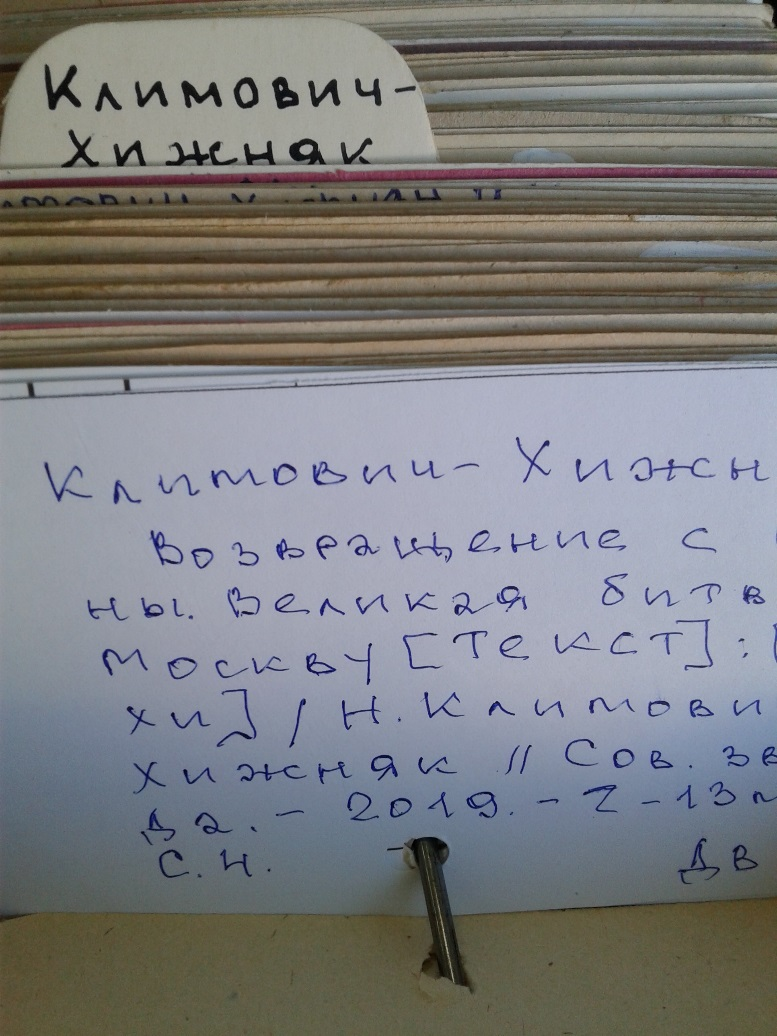 Климович-
Хижняк
Климович- Хижн
Возвращение с
ны. Великая битв
Москву [Текст] :
хи] / Н. Климови
Хижняк // Сов. зв
да. - 2019. - 7-13 м
С. 4.
Дв